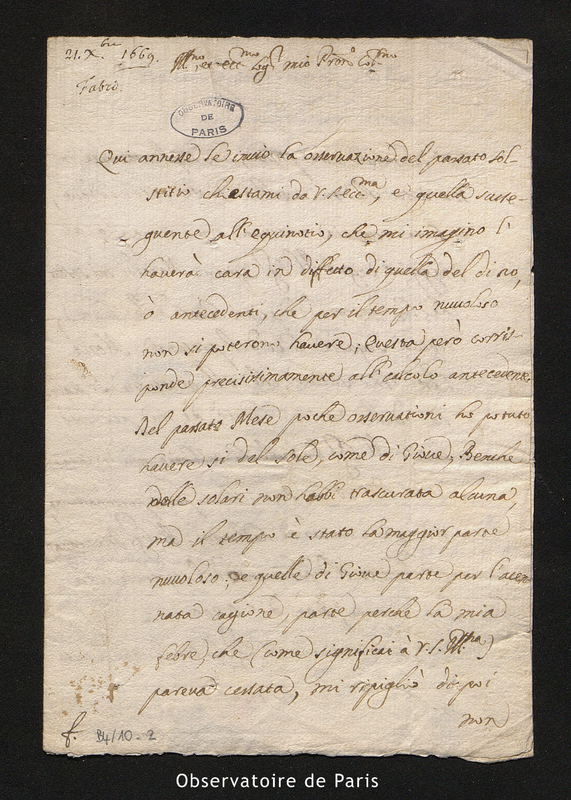 21. X.bre 1669.
Ill.mo et ecc.mo Sig.r mio Pron. Col.mo
Fabri.
OBSERVATOIRE
DE
PARIS
Qui annesse le invio la osservazione del passato sol-
stitio chiestami da V.S. Ecc.ma, e quella susse-
guente all'equinotio, che mi imagino l'
haverà cara in diffetto di quella del di
ò antecedenti, che per il tempo nuvoloso
non si poterono havere; Questa però corris-
ponde precisissimamente all'calcolo antecedente
Nel passato Mese poche osservationi ho potuto
havere si del Sole, come di Giove; Benche
delle solari non habbi trascurata alcuna,
ma il tempo è stato la maggior parte
nuvoloso; e quelle di Giove parte per l'acen-
nata cagione, parte perche la mia
febre, che (come significai à V.S. Ill.ma)
pareva cessata, mi ripigliò di poi
non
f. B4/10-2
Observatoire de Paris